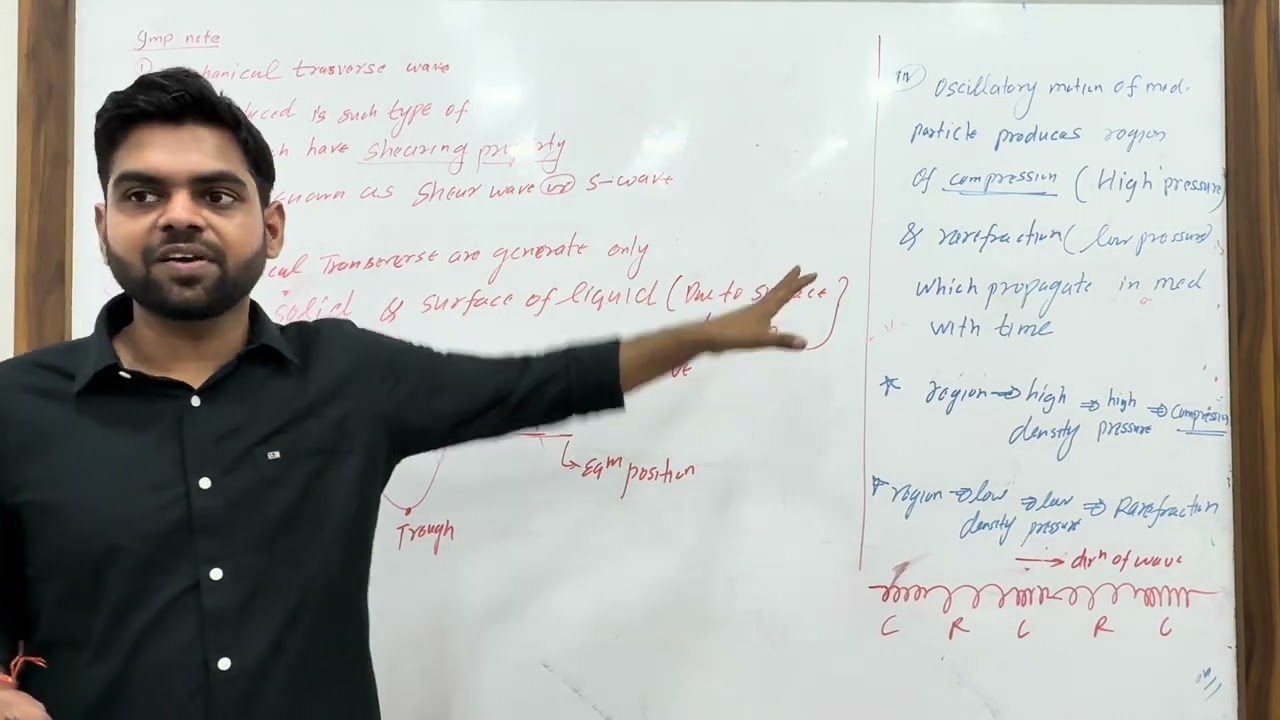 Imp note
① hanical trasverse wave
uced is such type of
ch have shearing property
known as Shear wave or S-wave
cal Transverse are generate only
solid & surface of liquid (Due to surface
Eqm position
Trough
iv) Oscillatory motion of med.
particle produces region
of compression (High pressure)
& rarefraction (low pressure)
which propagate in med
with time
* region → high density ⇒ high pressure ⇒ Compression
* region → low density ⇒ low pressure ⇒ Rarefraction
→ dirn of wave
C R C R C